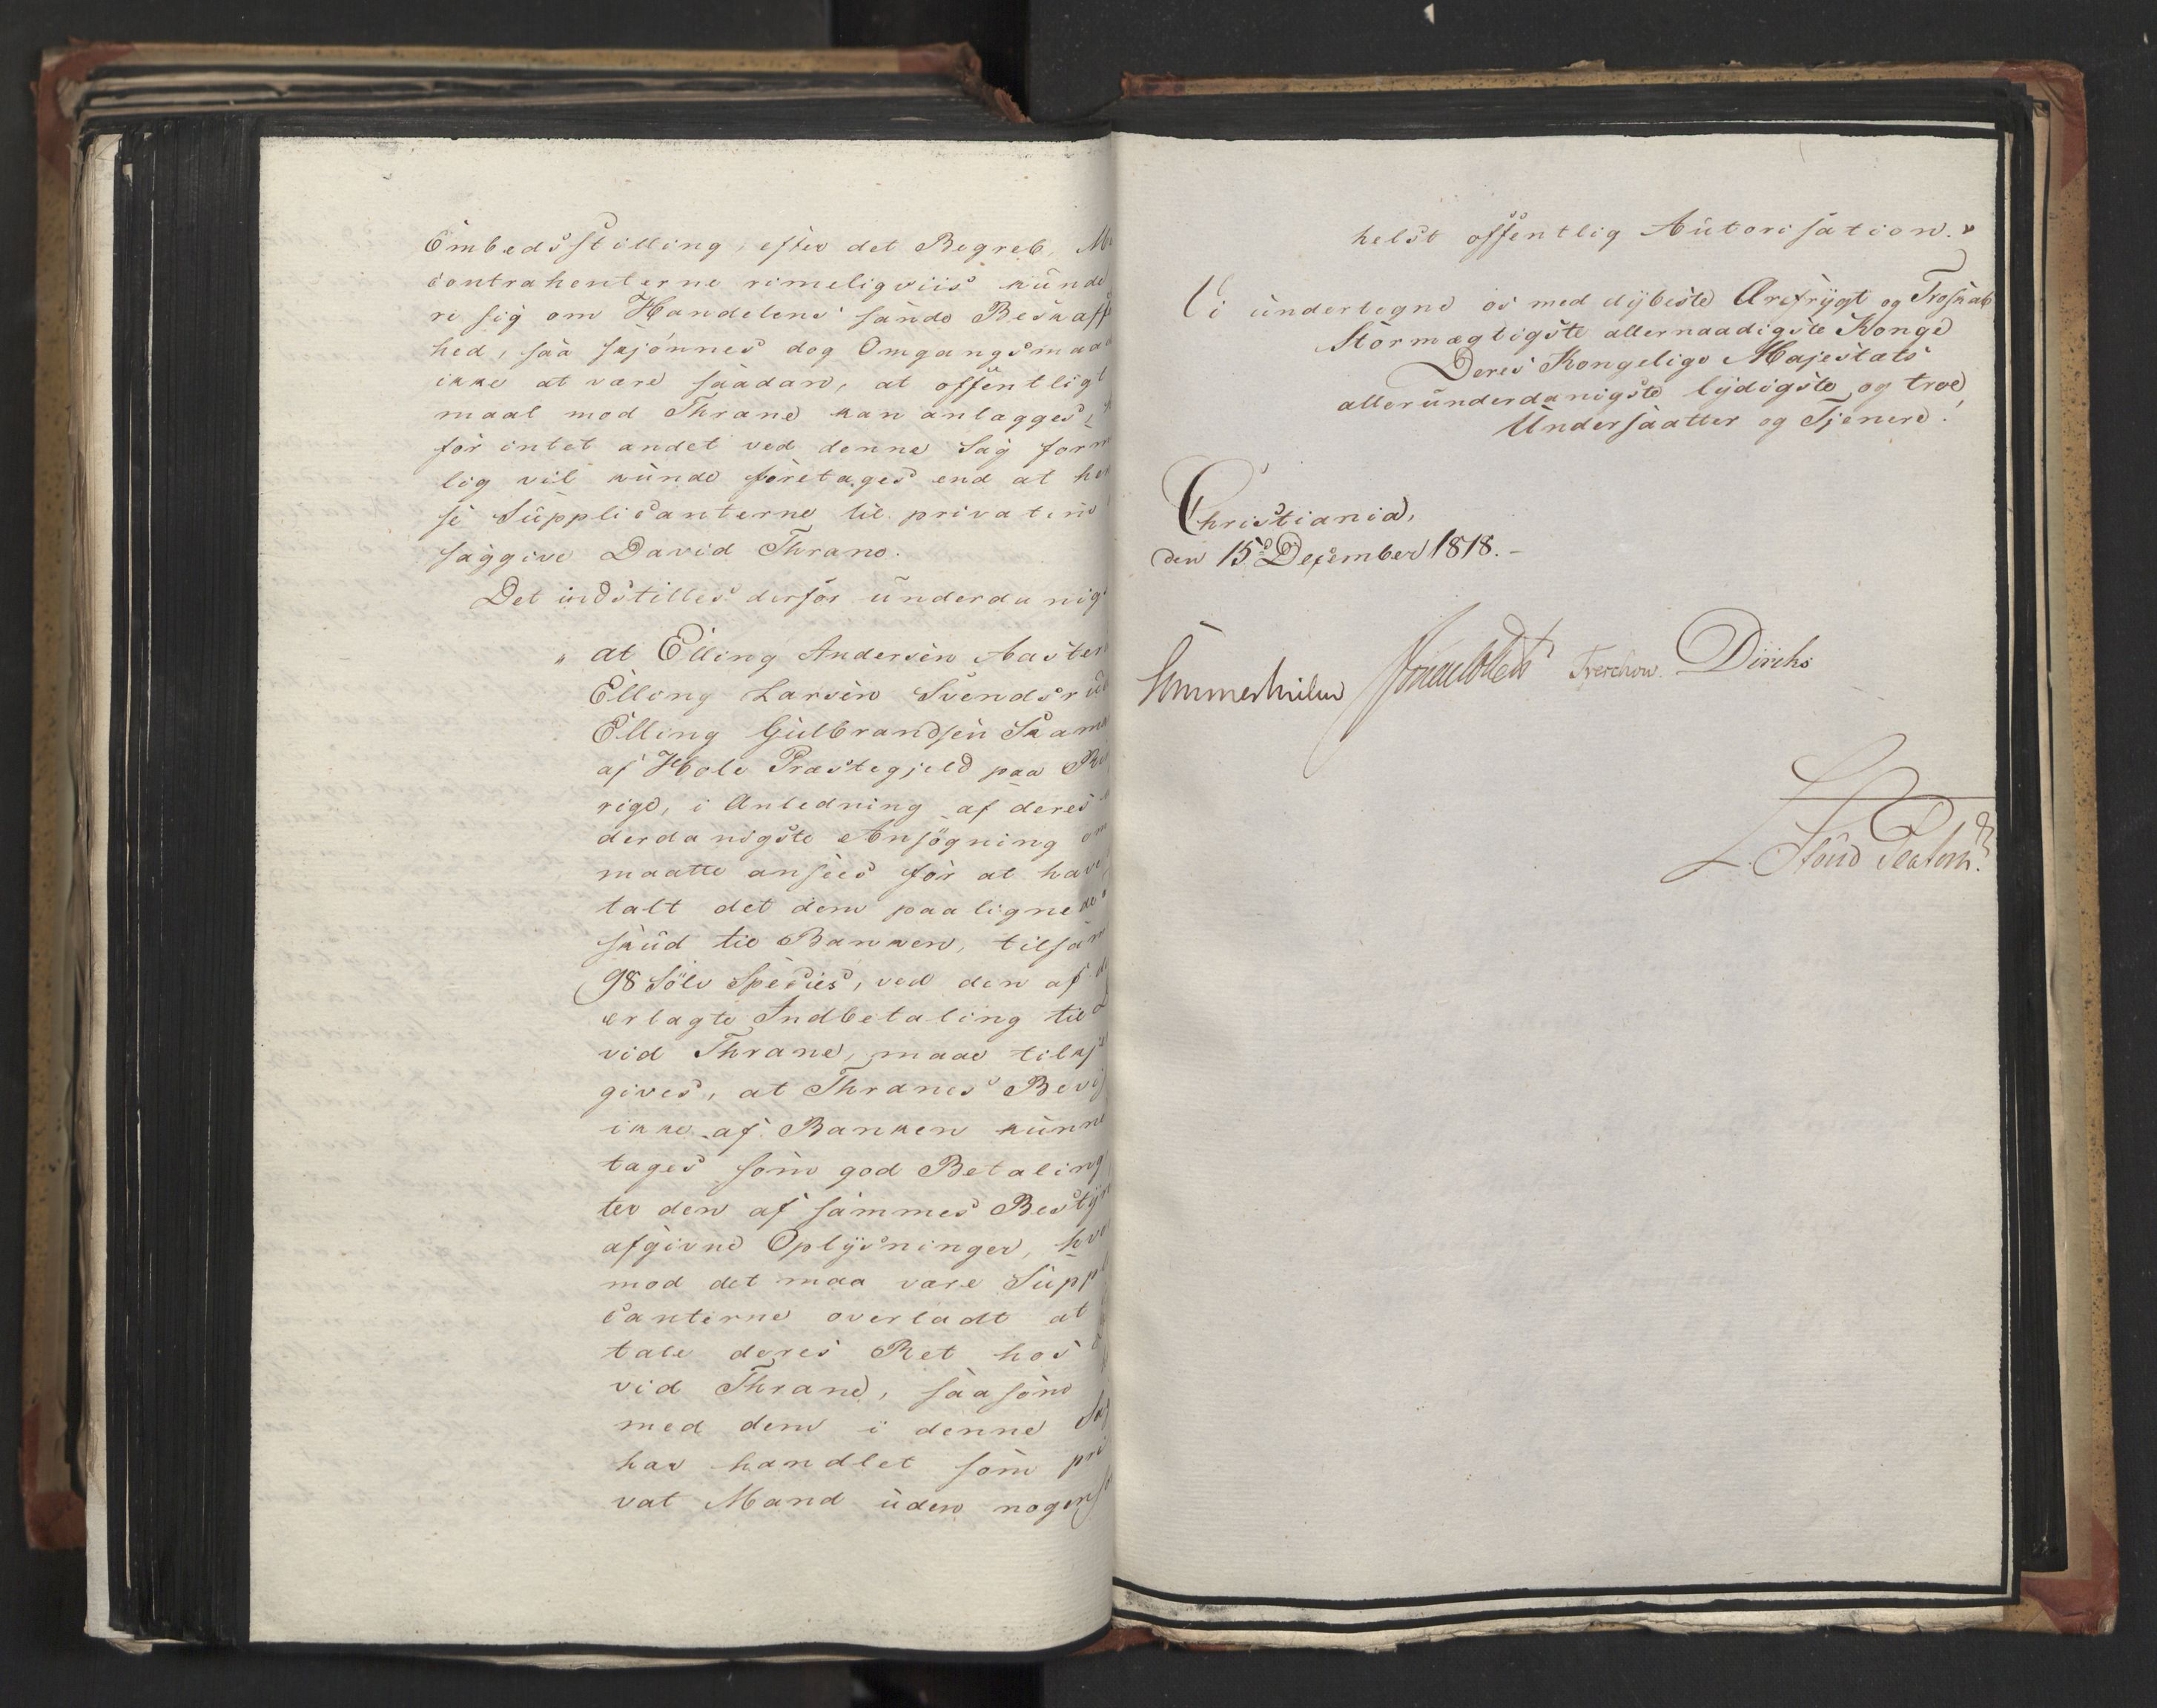 Embedsstilling, efter det Begreb,
Contrahenterne rimeligviis kunde
re sig om Handelens sande Beskaff
hed, saa skjönnes dog Omgangsmaad
ikke at være saadan, at offentligt
maal mod Thrane kan anlægges,
for intet andet ved denne Sag form
lig vil kunde foretages end at hen
se Supplicanterne til privatim
saggive David Thrane.
Det indstilles derfor underdanigs
" at Elling Andersen Aaster
Elling Larsen Svendsrud
Elling Gulbrandsen
af Hole Præstegjeld paa
rige, i Anledning af deres
derdanigste Ansögning om
maatte ansees for at have
talt det dem paalignede
skud til Banken, tilsam
98 Sölv Species, ved den af
erlagte Indbetaling til
vid Thrane, maae tilkj
gives, at Thranes Bevi
ikke af Banken kunne
tages som god Betaling,
ter den af sammes Besty
afgivne Oplysninger, hvo
mod det maa være Suppl
canterne overladt at
tale deres Ret hos
vid Thrane, saasom
med dem i denne Sag
har handlet som pri
vat Mand uden nogens
helst offentlig Autorisation."
Vi undertegne os med dybeste Ærefrygt og Troskab
Stormægtigste allernaadigste Konge
Deres Kongelige Majestæts
allerunderdanigste lydigste og troe
Undersaatter og Tjenere!
Christiania,
den 15de December 1818.-
Sommerhielm Treschow. Diriks